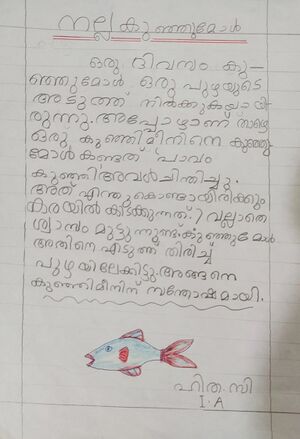 നല്ല കുഞ്ഞുമോൾ
ഒരു ദിവസം കു-
ഞ്ഞുമോൾ ഒരു പുഴയുടെ
അടുത്ത് നിൽക്കുകയായി
രുന്നു. അപ്പോഴാണ് താഴെ
ഒരു കുഞ്ഞിമീനിനെ കുഞ്ഞു
മോൾ കണ്ടത് പാവം
കുഞ്ഞി അവൾ ചിന്തിച്ചു.
അത് എന്തുകൊണ്ടായിരിക്കും
കരയിൽ കിടക്കുന്നത്? വല്ലാതെ
ശ്വാസം മുട്ടുന്നുണ്ട്. കുഞ്ഞുമോൾ
അതിനെ എടുത്ത് തിരിച്ച്
പുഴയിലേക്കിട്ടു. അങ്ങനെ
കുഞ്ഞിമീനിന് സന്തോഷമായി.
ഹിത. സി
I. A